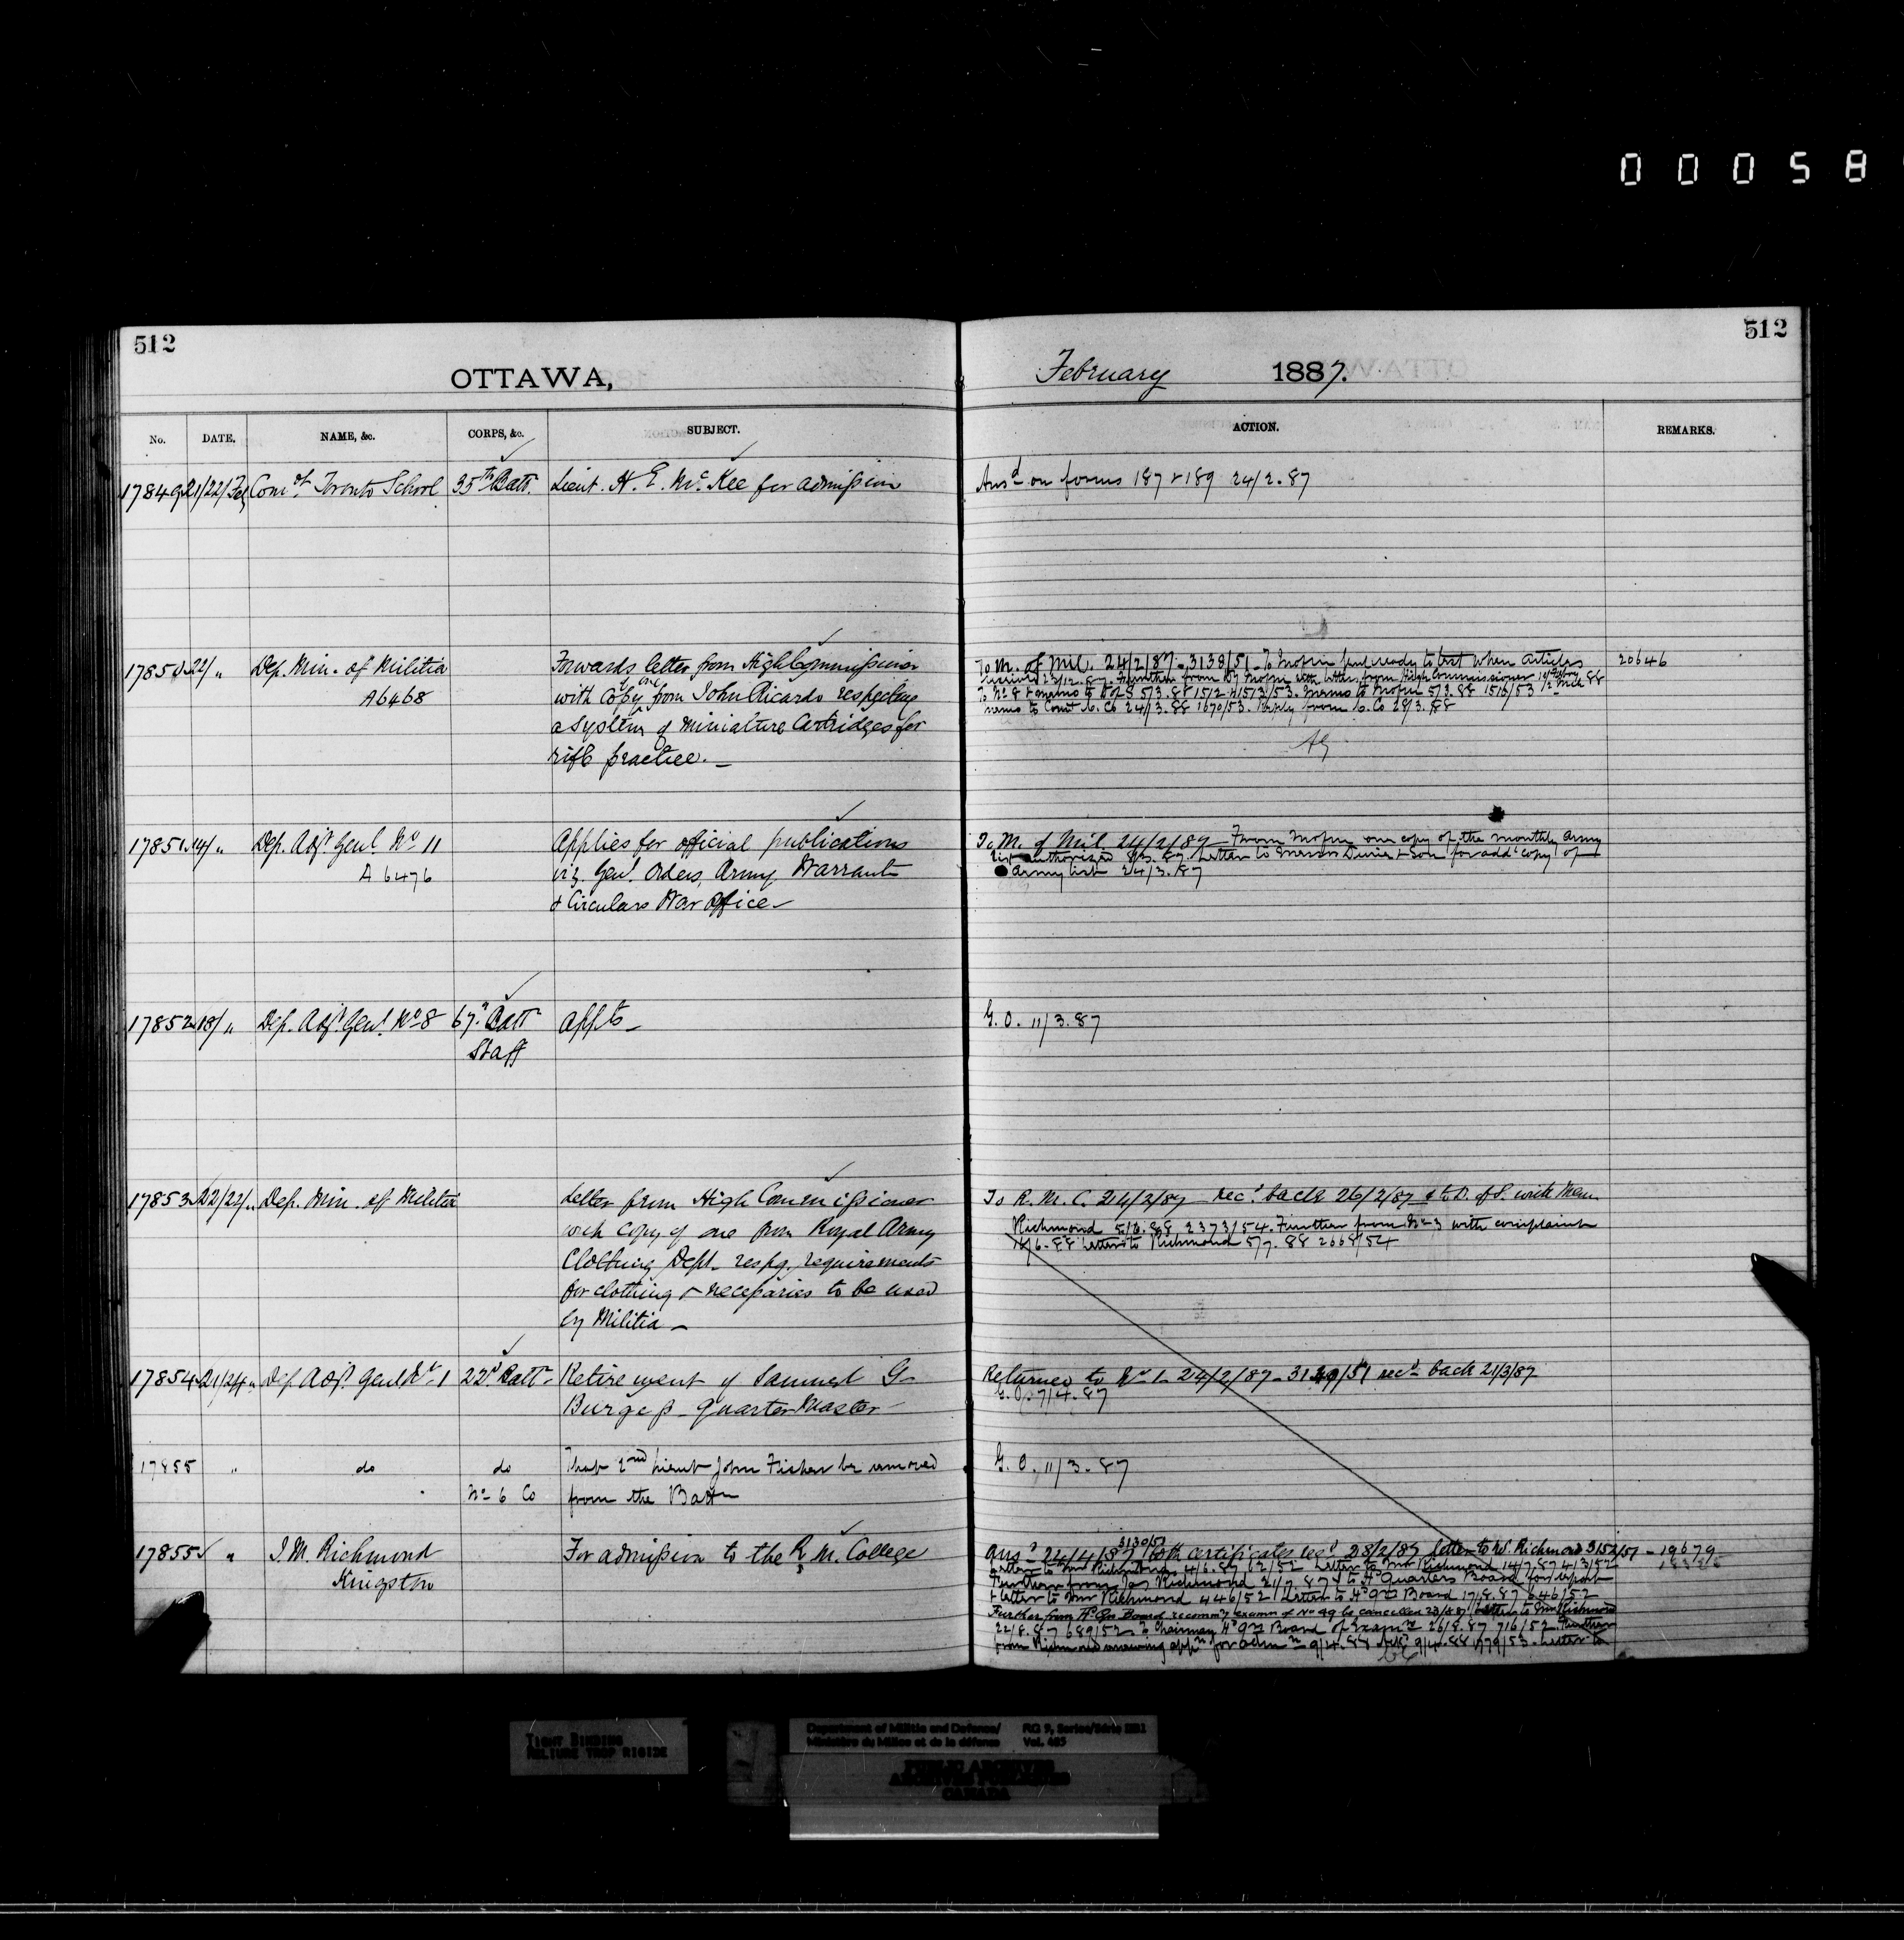 00058
512
512
OTTAWA,
February 1887.
No. DATE. NAME, &c. CORPS, &c. SUBJECT. ACTION. REMARKS.
17849 21/22/Feby Comt. Toronto School 35th Batt. Lieut. H. E. McKee for admission
Ansd on forms 187 & 189 24/2.87
17850 22/ " Dep. Min. of Militia Forwards letter from High Commissioner
A6468 with copy of one from John Ricardo respecting
a system of miniature Cartridges for
rifle practice. _
To M. of Mil. 24/2/87 - 3138/51 - To Inspr ready to test when articles
received 23/12.87. Further from Inspr with letter from High Commissioner
5/3.88 1512 & 1513/53. memo to Inspr 5/3.88 1516/53
memo to Comt C. Co 24/3.88 1670/53. Reply from C. Co 28/3.88
20646
17851 14/ " Dep. Adjt. Genl No 11 Applies for official publications
A 6476 viz. Genl. Orders, Army Warrants
& Circulars War Office -
To M. of Mil. 24/2/87 - From Inspr one copy of the monthly army
list authorized 8/3.87. Letter to Messrs Durie & Son for addl copy of
army list 24/3.87
17852 18/ " Dep. Adjt. Genl. No 8 67th Batt appts -
Staff
G. O. 11/3.87
17853 22/22/ " Dep. Min. of Militia Letter from High Commissioner
with copy of one from Royal Army
Clothing Dept. respg. requirements
for clothing & necessaries to be used
by Militia -
To R. M. C. 24/2/87 recd. back 26/2/87 & to D. of S. with Mem.
Richmond 5/6.88 2373/54. Further from with complaint
/6.88 Letter to Richmond 5/7.88 2668/54
17854 21/24 " Dep Adjt Genl No 1 22d. Batt - Retirement of Samuel G-
Burgess - Quarter Master -
Returned to No 1 - 24/2/87 - /51 recd back 21/3/87
G. O. 7/4.87
17855 " do do That 2nd Lieut John Fisher be removed
No 6 Co from the Battn
G. O. 11/3.87
17855½ " J. M. Richmond For admission to the R. M. College
Kingston
3130/51
Ansd 24/4/87 With certificates recd 28/2/87 letter to W. Richmond 3152/51 - 19679
Letter to Mr Richmond 4/6.87 62/52 Letter to Mr Richmond 14/7.87 413/52
Further from Jas Richmond 21/7.87 & to Hd Quarters Board for report
& letter to Mr Richmond 446/52 Letter to Hd Qrs Board 17/8.87 646/52
Further from Hd Qrs Board recommg examn of No 49 be cancelled 23/8.87 Letter to Mr Richmond
22/8.87 689/52 To Chairman Hd Qrs Board of Examrs 26/8.87 716/52 Further
from Richmond renewing appn for admn 9/4.88 Ansd 9/4.88 1779/53. Letter to
TIGHT BINDING
RELIURE TROP RIGIDE
Department of Militia and Defence/
Ministère du Milice et de la défense
RG 9, Series/Série IIB1
Vol. 485
PUBLIC ARCHIVES
ARCHIVES PUBLIQUES
CANADA